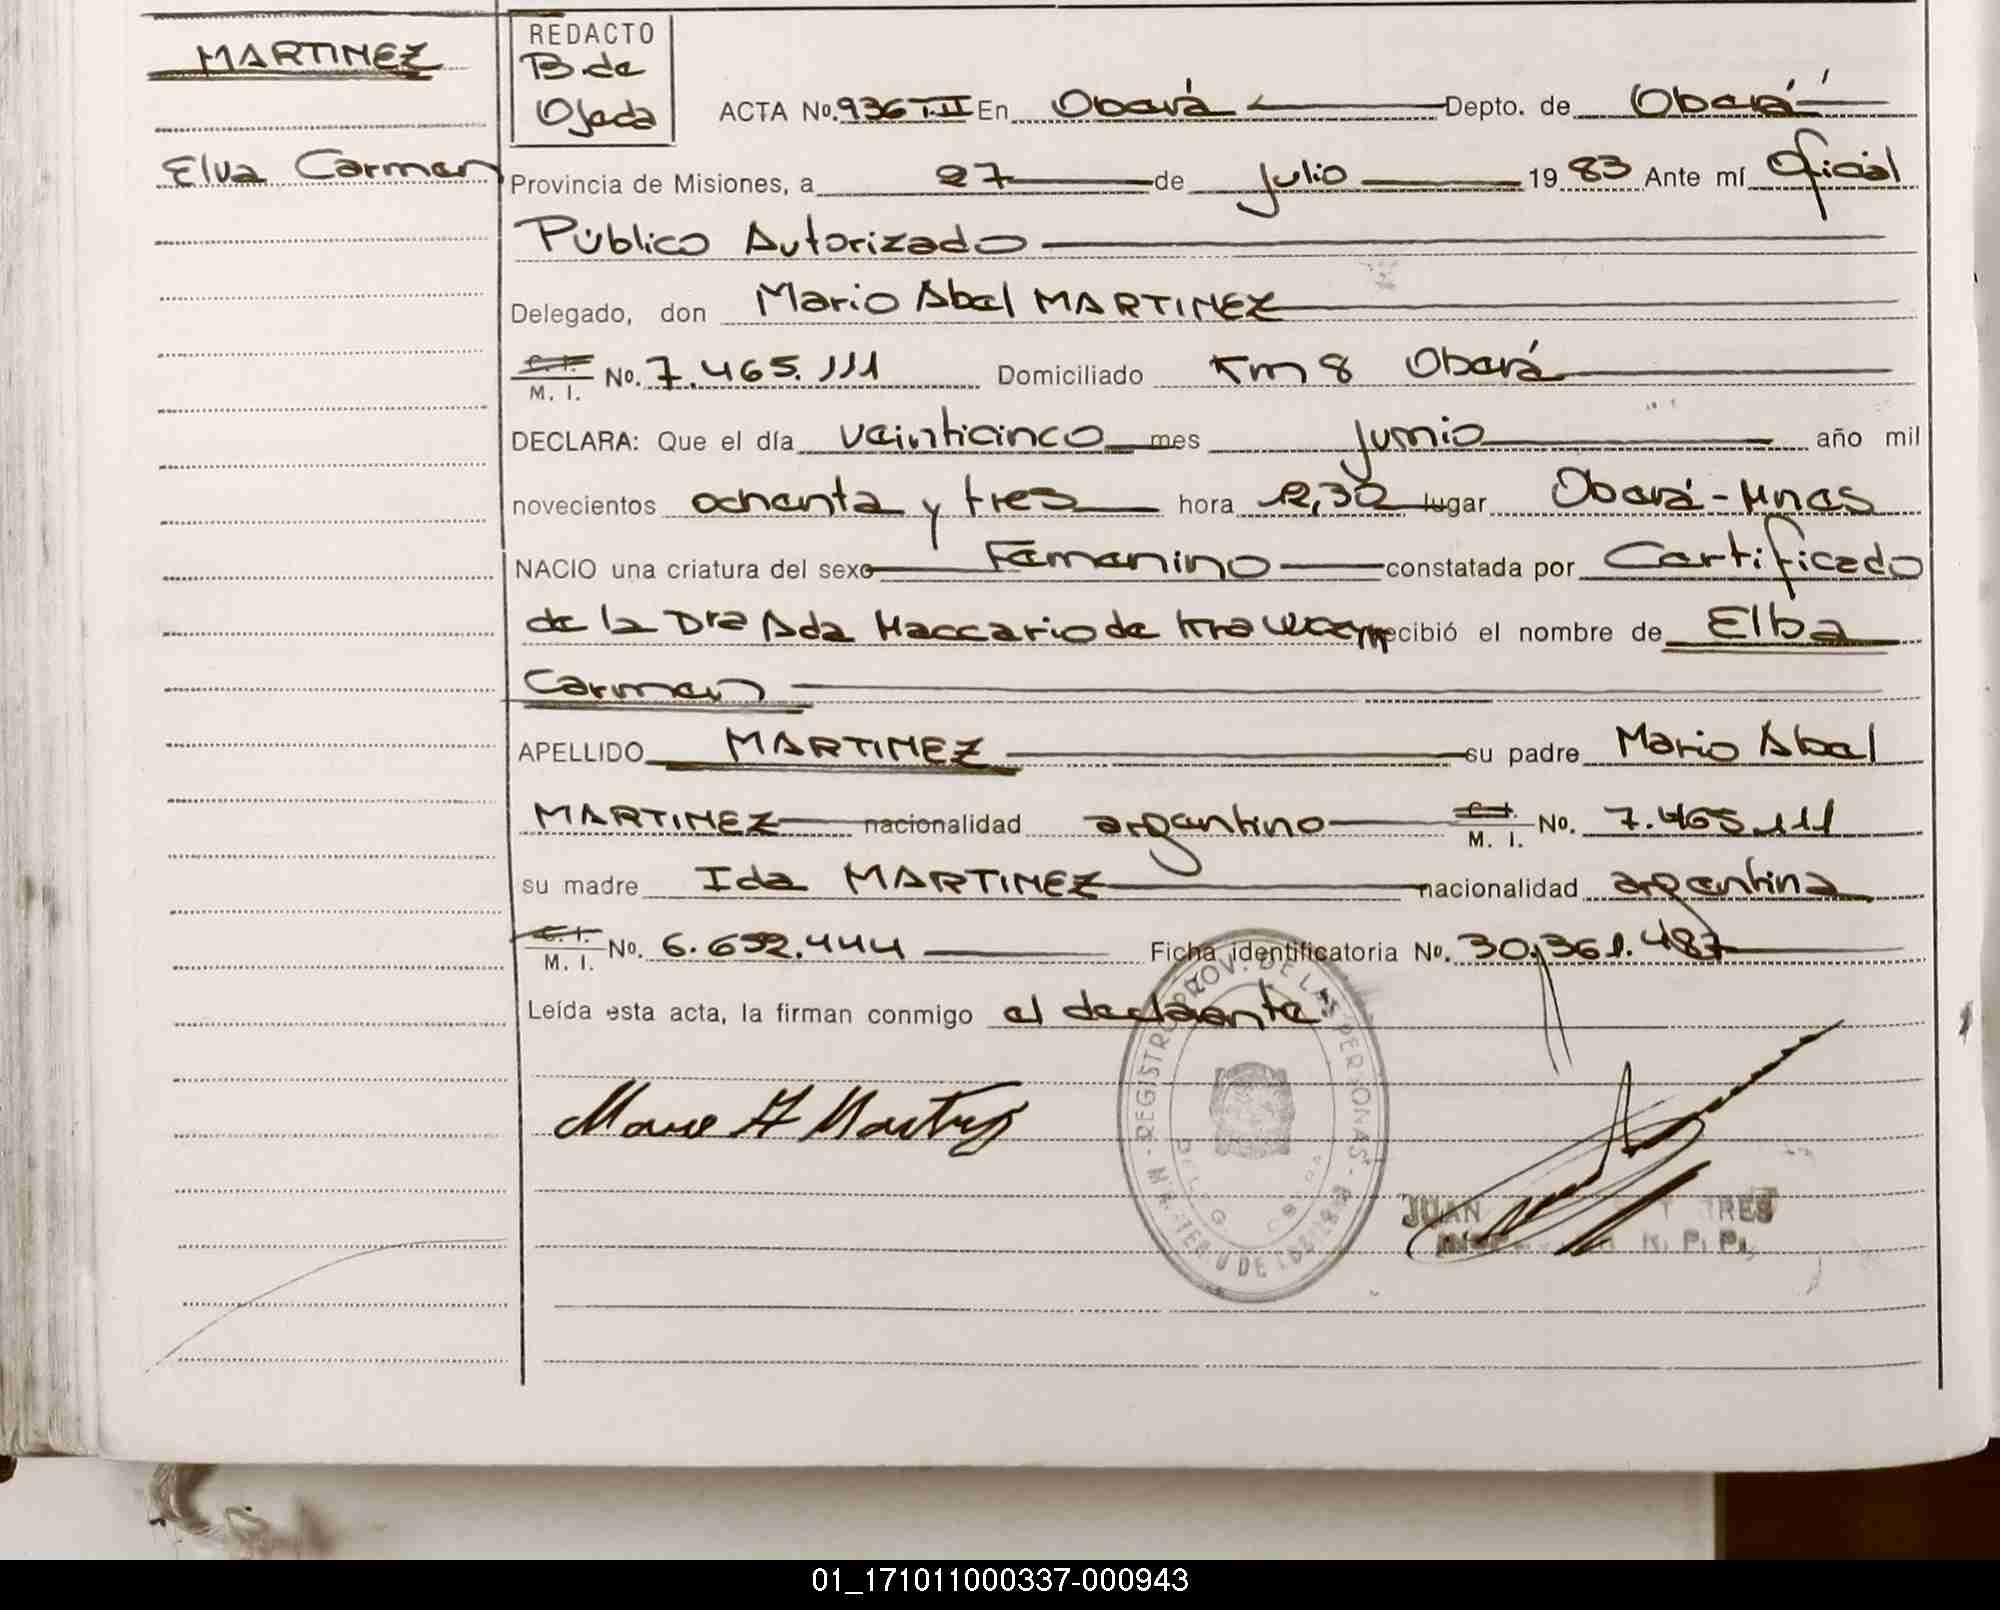 MARTINEZ
Elva Carmen
REDACTO
B de
Ojeda
ACTA No. 936 T.II En Oberá Depto. de Oberá
Provincia de Misiones, a 27 de julio 19 83 Ante mí Oficial
Público Autorizado
Delegado, don Mario Abel MARTINEZ
C. I.
M. I. No. 7.465.111 Domiciliado Km 8 Oberá
DECLARA: Que el día veinticinco mes junio año mil
novecientos ochenta y tres hora 12,30 lugar Oberá - Mnes
NACIO una criatura del sexo Femenino constatada por Certificado
de la Dra Ada Maccario de recibió el nombre de Elba
Carmen
APELLIDO MARTINEZ su padre Mario Abel
MARTINEZ nacionalidad argentino C. I. M. I. No. 7.465.111
su madre Ida MARTINEZ nacionalidad argentina
C. I. M. I. No. 6.652.444 Ficha identificatoria No. 30.361.487
Leída esta acta, la firman conmigo el declaante
Mario A Martinez
REGISTRO PROV. DE LAS PERSONAS
JUAN
R. P. P.
01_171011000337-000943